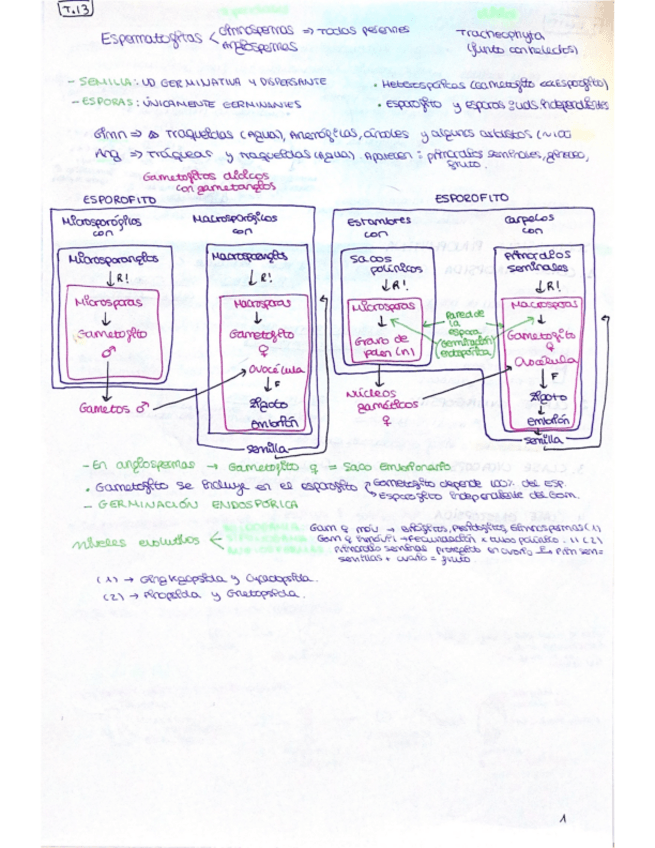 T.13
Espermatofitas < Gimnospermas => Todas perennes
Angiospermas
Tracheophyta
(junto con helechos)
- SEMILLA: UD GERMINATIVA Y DISPERSANTE
- ESPORAS: ÚNICAMENTE GERMINANTES
• Heterospóricas (Gametofito Esporofito)
• Esporofito y esporas uds. independientes
Gimn => Traqueidas (Agua), Anemófilas, árboles y algunos arbustos
Ang => Tráqueas y traqueidas (Agua). Aparecen: primordios seminales, gineceo,
fruto.
Gametofitos dioicos
con gametangios
ESPOROFITO
Microsporófilos
con
Microsporangios
↓R!
Microsporas
↓
Gametofito
♂
Gametos ♂
Macrosporófilos
con
Macrosporangios
↓R!
Macrosporas
↓
Gametofito
♀
Ovocélula
↓F
Zigoto
↓
embrión
semilla
ESPOROFITO
Estambres
con
Sacos
polínicos
↓R!
Microsporas
↓
Grano de
polen (n)
Núcleos
gaméticos
♀
Pared de
la
espora
(Germinación
endospórica)
Carpelos
con
Primordios
seminales
↓R!
Macrosporas
↓
Gametofito
♀
Ovocélula
↓F
Zigoto
↓
embrión
semilla
- En angiospermas → Gametofito ♀ = Saco Embrionario
• Gametofito se incluye en el esporofito → Gametofito depende 100% del Esp.
→ Esporofito independiente del Gam.
- GERMINACIÓN ENDOSPÓRICA
Niveles evolutivos <
Gam ♀ móv → Briófitos, Pteridofitos, Gimnospermas (1)
Gam ♀ inmóvil → Fecundación x tubo polínico. (2)
Primordio seminal protegido en ovario → Prim sem=
semillas + ovario = fruto
(1) → Ginkgopsida y Cycadopsida.
(2) → Pinopsida y Gnetopsida.
1